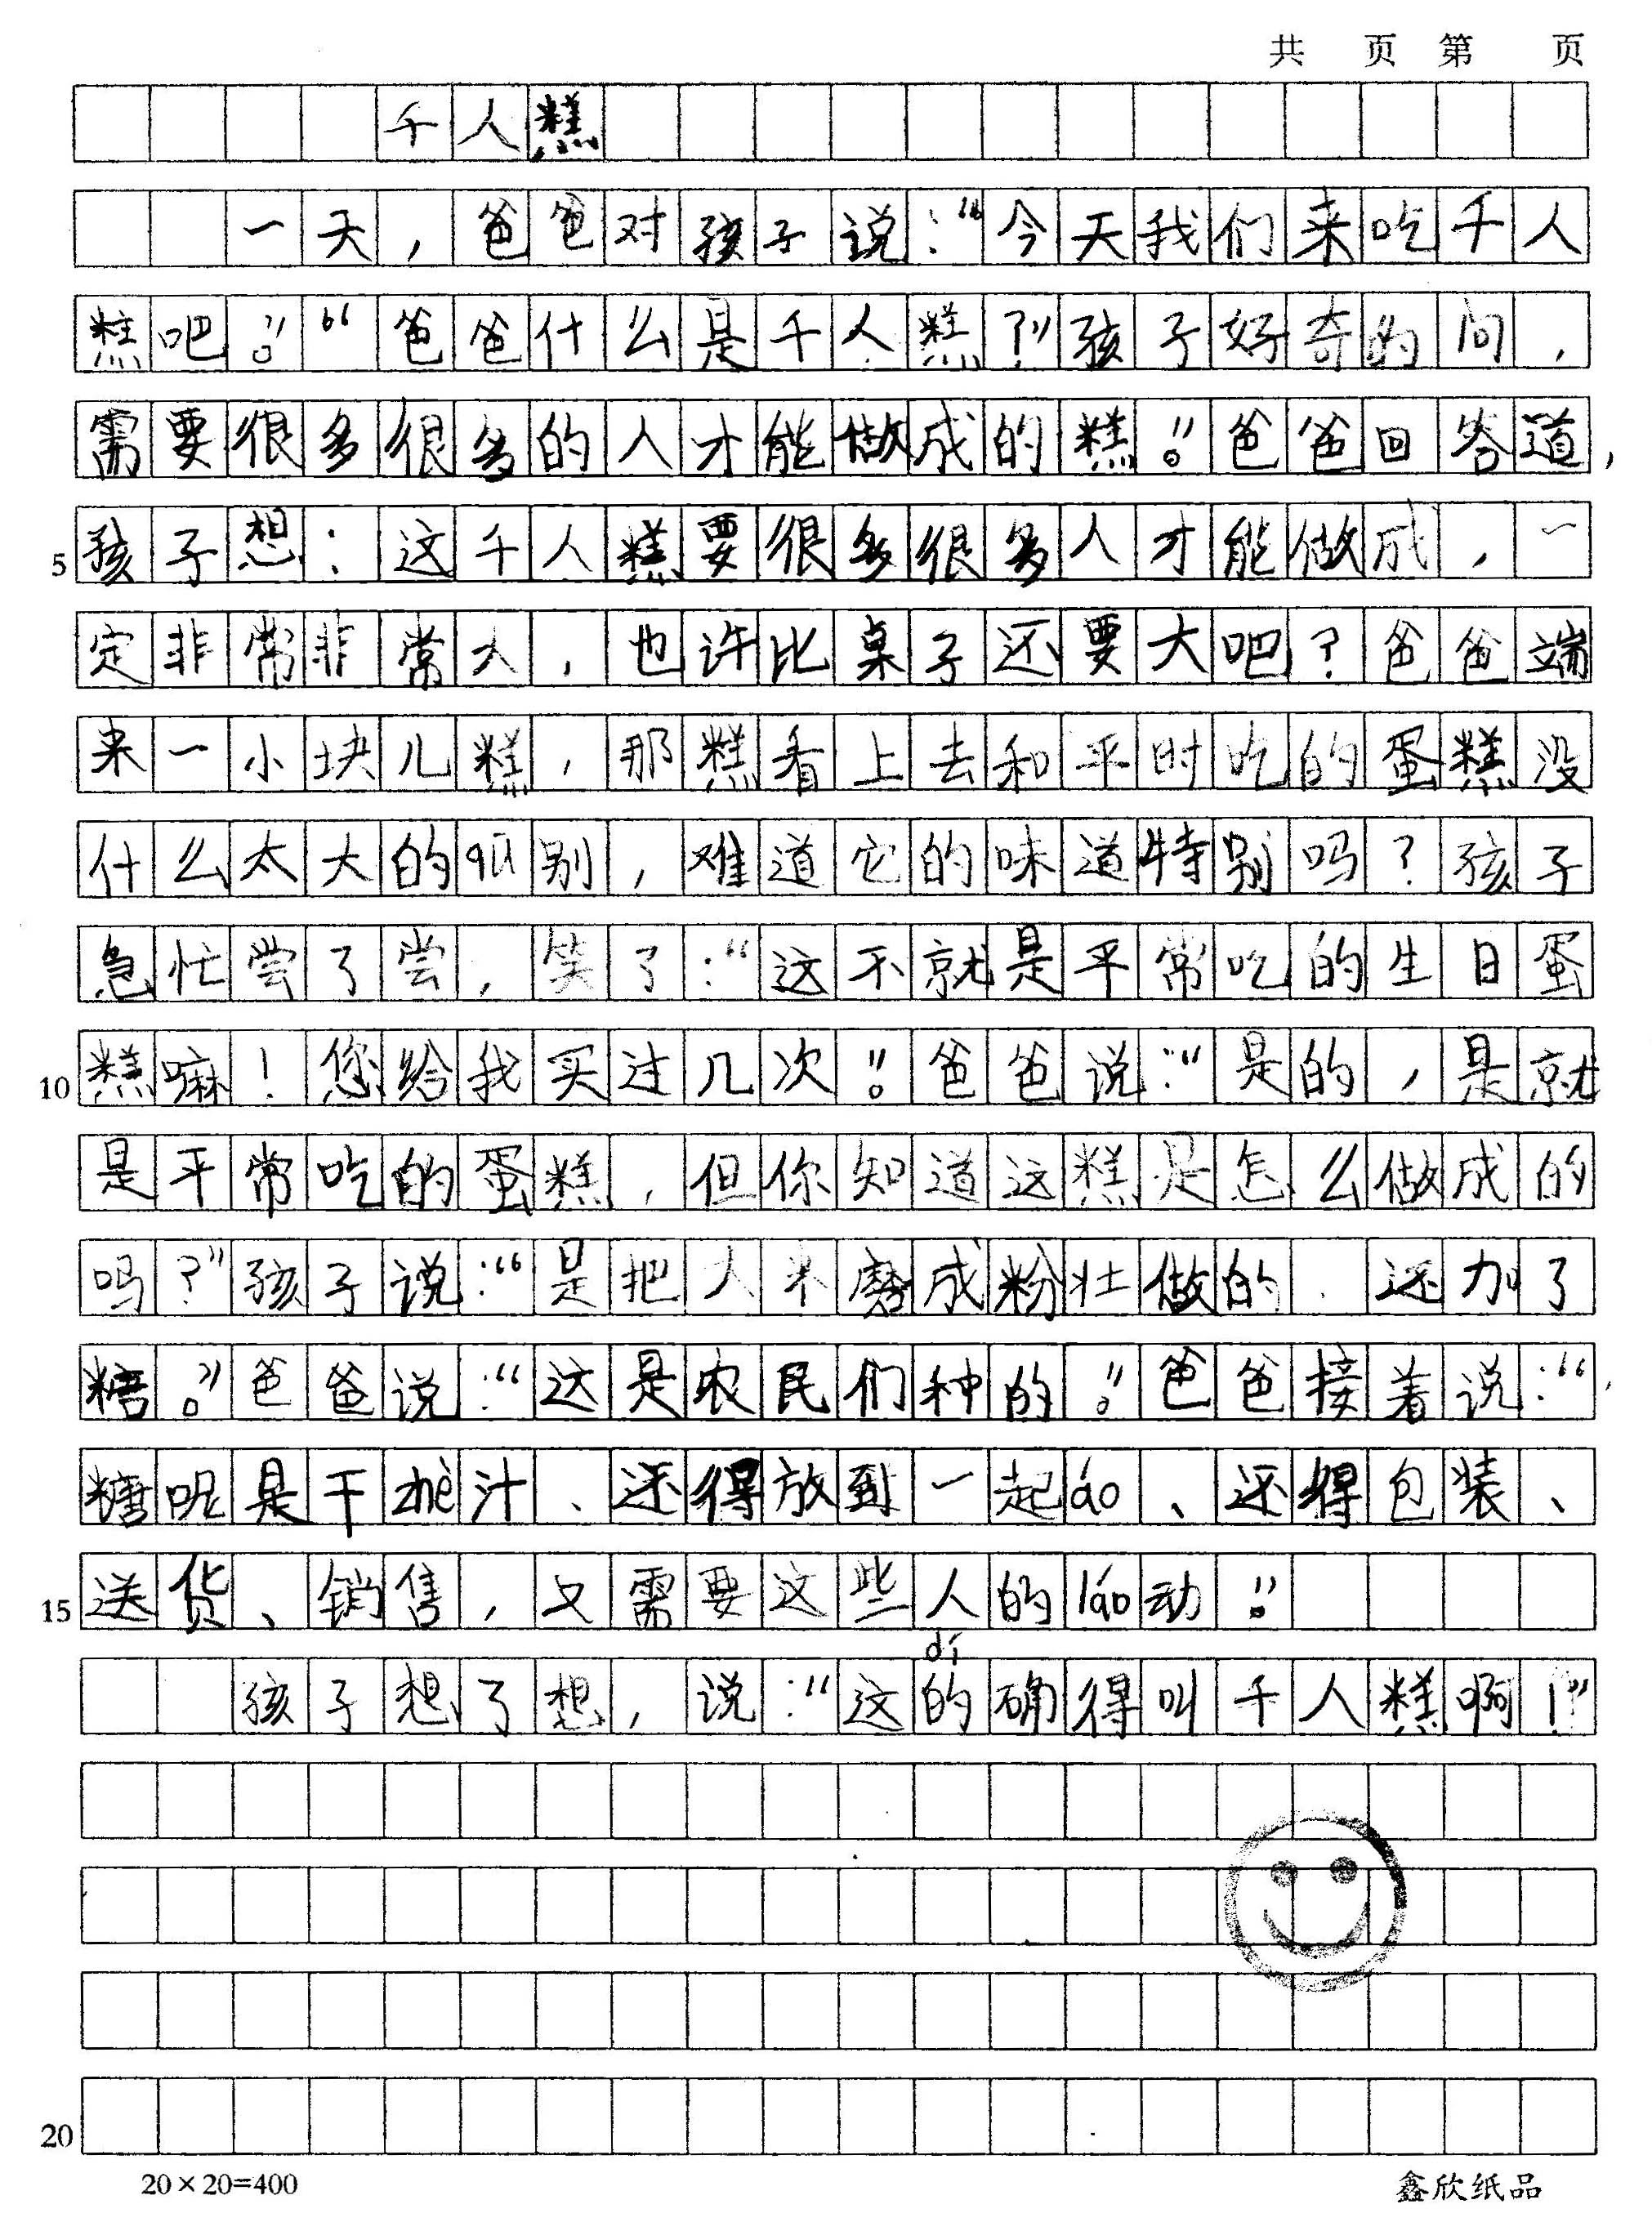 共 页 第 页
千人糕
一天，爸爸对孩子说：“今天我们来吃千人
糕吧。”“爸爸什么是千人糕？”孩子好奇的问，
需要很多很多的人才能做成的糕。”爸爸回答道，
5 孩子想：这千人糕要很多很多人才能做成，一
定非常非常大，也许比桌子还要大吧？爸爸端
来一小块儿糕，那糕看上去和平时吃的蛋糕没
什么太大的qū别，难道它的味道特别吗？孩子
急忙尝了尝，笑了：“这不就是平常吃的生日蛋
10 糕嘛！您给我买过几次。”爸爸说：“是的，是就
是平常吃的蛋糕，但你知道这糕是怎么做成的
吗？”孩子说：“是把大米磨成粉壮做的、还加了
糖。”爸爸说：“这是农民们种的。”爸爸接着说：“
糖呢是干zhè汁、还得放到一起áo、还得包装、
15 送货、销售，又需要这些人的láo动。”
孩子想了想，说：“这的dí确得叫千人糕啊！”
20
20×20=400 鑫欣纸品